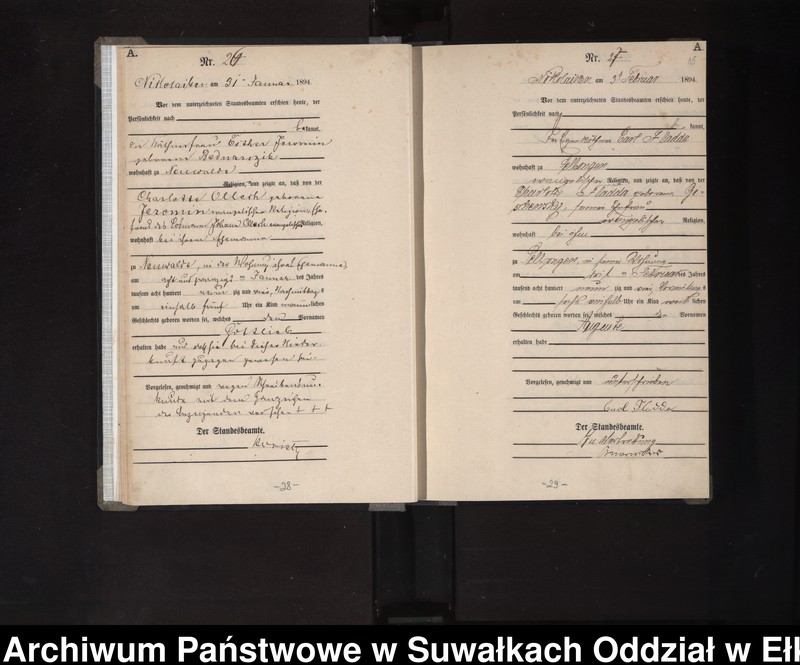 A.
Nr. 26
Nikolaiken am 31 Januar 1894.
Vor dem unterzeichneten Standesbeamten erschien heute, der
Persönlichkeit nach
kannt,
die Käthnerfrau Esther Jeromin
geborene Bednarczik
wohnhaft zu Neuwalde
Religion, und zeigte an, daß von der
Charlotte Olbech geborene
Jeromin evangelischer Religion, Ehe-
frau des Johann Olbech evangelischer Religion,
wohnhaft bei ihrem Ehemanne
zu Neuwalde, in der Wohnung ihres Ehemannes
am acht und zwanzigsten Januar des Jahres
tausend acht hundert neun zig und vier, Nachmittags
um einhalb fünf Uhr ein Kind männlichen
Geschlechts geboren worden sei, welches den Vornamen
Gottlieb
erhalten habe und daß sie bei dieser Nieder-
kunft zugegen gewesen sei
Vorgelesen, genehmigt und wegen Schreibensun-
kunde mit dem Handzeichen
der Anzeigenden versehen + + +
Der Standesbeamte.
-28-
A
Nr. 27
Nikolaiken am 3 Februar 1894
Vor dem unterzeichneten Standesbeamten erschien heute, der
Persönlichkeit nach
kannt,
der Eigenkäthner Carl
wohnhaft zu
evangelischer Religion, und zeigte an, daß von der
Charlotte geborene
seiner Ehefrau
evangelischer Religion,
wohnhaft bei ihm
zu in seiner Wohnung
am des Jahres
tausend acht hundert neun zig und vier Vormittags
um einhalb Uhr ein Kind weiblichen
Geschlechts geboren worden sei, welches den Vornamen
Auguste
erhalten habe
Vorgelesen, genehmigt und unterschrieben
Carl
Der Standesbeamte.
In Vertretung
-29-
Archiwum Państwowe w Suwałkach Oddział w Eł